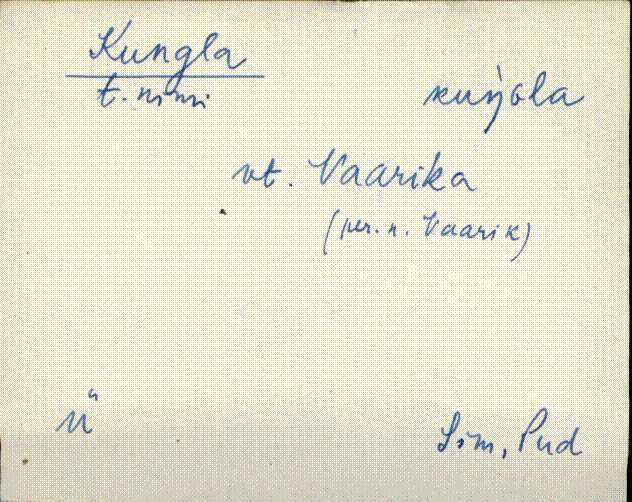 Kungla
t. nimi kuŋola
vt. Vaarika
(per. n. Vaarik)
Sim, Pud